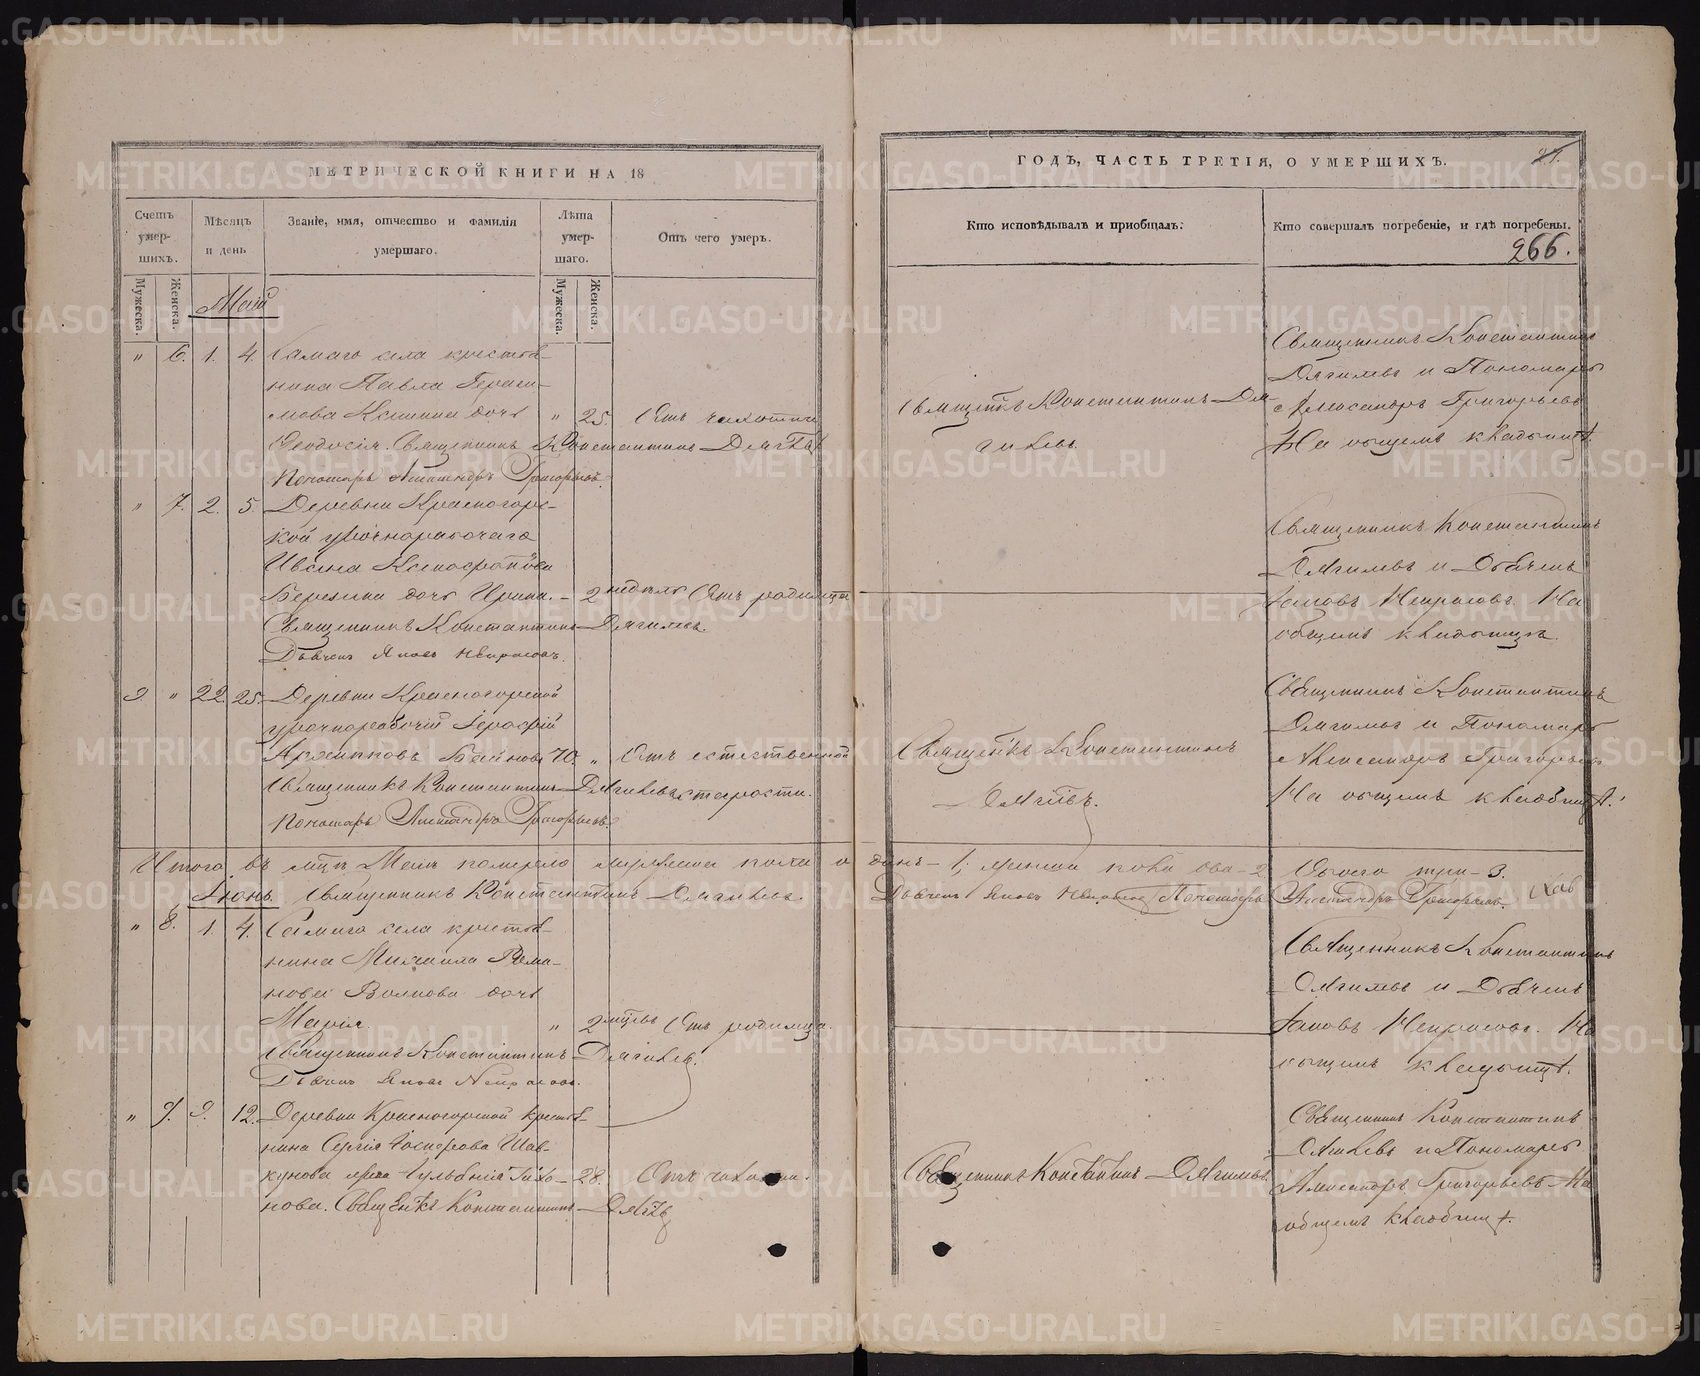 МЕТРИЧЕСКОЙ КНИГИ НА 18
Счетъ умер-шихъ.
Мѣсяцъ и день
Званіе, имя, отчество и фамилія умершаго.
Лѣта умер-шаго.
Отъ чего умеръ.
Мужеска.
Женска.
Мужеска.
Женска.
Май
" 6. 1. 4. Самаго села крестья-
нина Павла Гераси-
мова дочь " 25. Отъ чахотки
Феодосія. Священникъ Константинъ
Пономарь Александръ Григорьевъ.
" 7. 2. 5. Деревни Красногорс-
кой урочнорабочаго
Ивана
дочь Ирина. 2 недѣль Отъ родимца
Священникъ Константинъ Дягилевъ.
Дьячекъ Яковъ Некрасовъ.
2 " 22. 25. Деревни Красногорской
урочнорабочій
70. " Отъ естественной
Священникъ Константинъ Дягилевъ старости.
Пономарь Александръ Григорьевъ.
Итого въ Маѣ померло мужеска пола одинъ 1, женска пола два 2 Всего три 3.
Іюнь. Священникъ Константинъ Дягилевъ. Дьячекъ Яковъ Некрасовъ Пономарь Александръ Григорьевъ.
" 8. 1. 4. Самаго села крестья-
нина Михаила Рома-
нова Волкова дочь
Марія. " 2 Отъ родимца.
Священникъ Константинъ Дягилевъ.
Дьячекъ Яковъ Некрасовъ.
" 9. 9. 12. Деревни Красногорской крестья-
нина Сергія Іосифова Шав-
кунова жена Тихо- 28. Отъ чахотки.
нова. Константинъ
ГОДЪ, ЧАСТЬ ТРЕТІЯ, О УМЕРШИХЪ.
27.
Кто исповѣдывалъ и пріобщалъ.
Кто совершалъ погребеніе, и гдѣ погребены.
266.
Константинъ Дя-
гилевъ
Священникъ Константинъ
Дягилевъ и Пономарь
Александръ Григорьевъ
На общемъ кладбищѣ.
Священникъ Константинъ
Дягилевъ и Дьячекъ
Іаковъ Некрасовъ. На
общемъ кладбищѣ.
Константинъ
Священникъ Константинъ
Дягилевъ и Пономарь
Александръ Григорьевъ
На общемъ кладбищѣ.
Священникъ Константинъ
Дягилевъ и Дьячекъ
Іаковъ Некрасовъ. На
общемъ кладбищѣ.
Священникъ Константинъ Дягилевъ.
Священникъ Константинъ
Дягилевъ и Пономарь
Александръ Григорьевъ. На
общемъ кладбищѣ.
METRIKI.GASO-URAL.RU